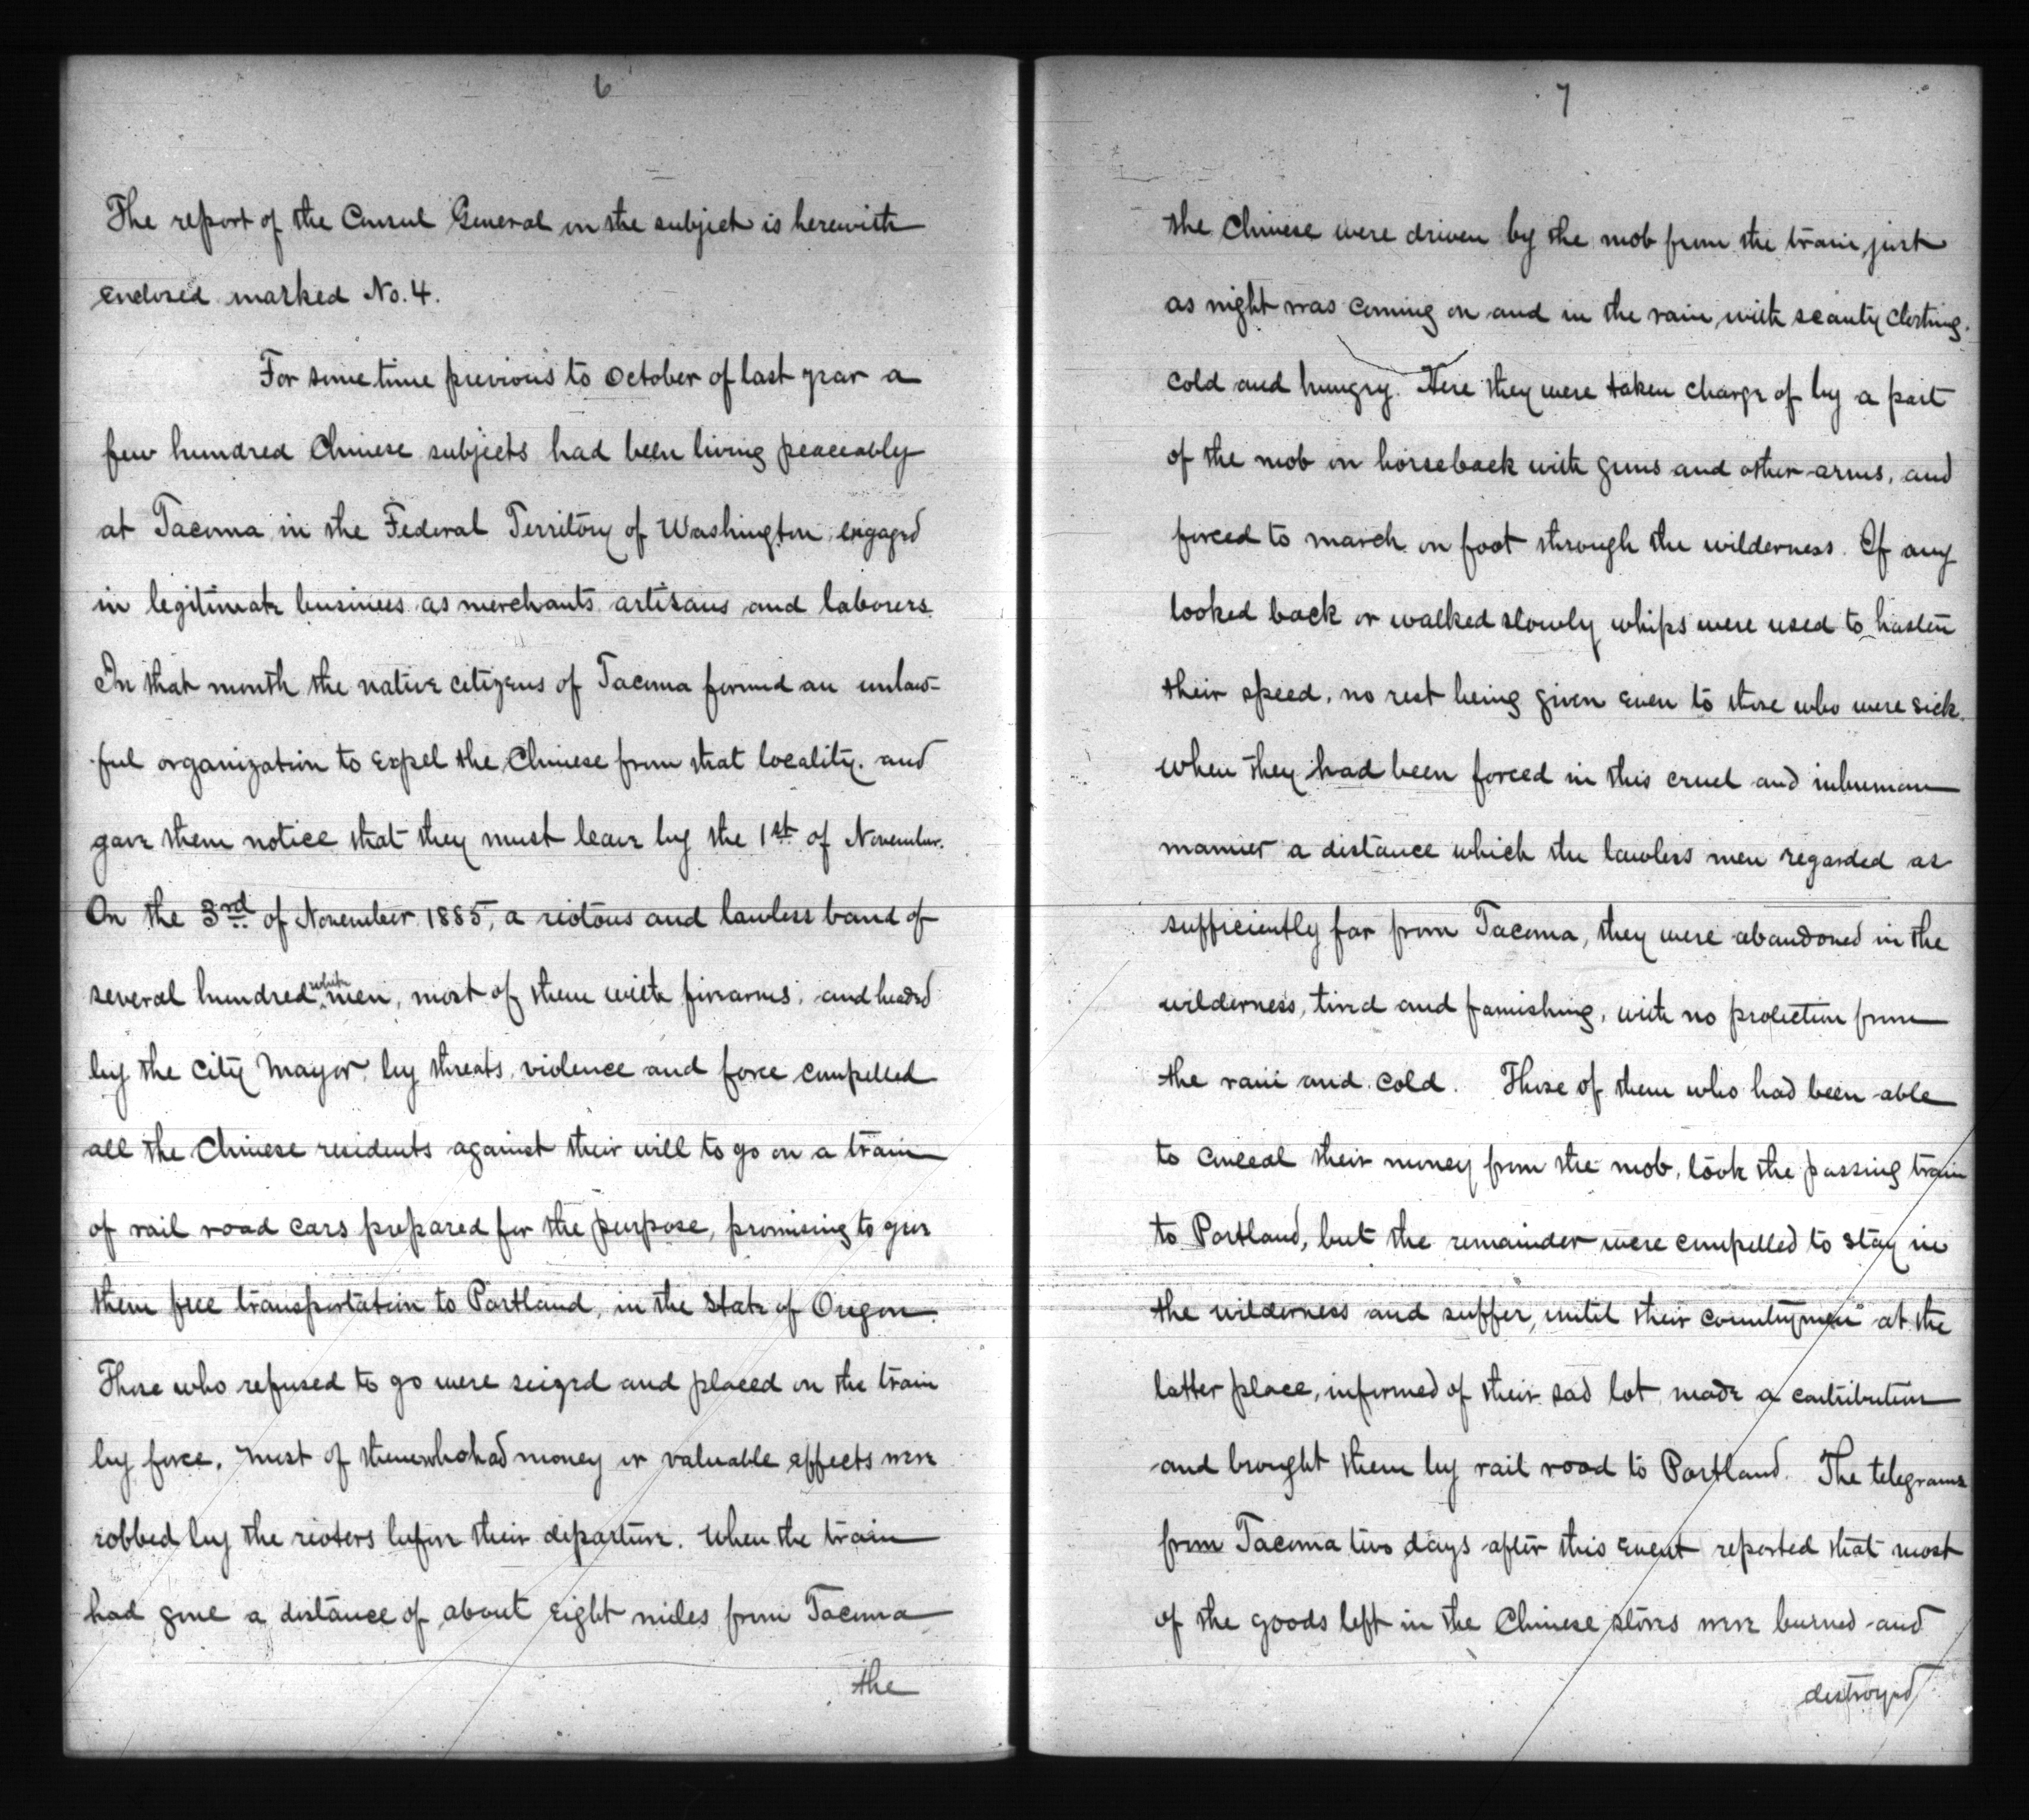 6
The report of the Consul General on the subject is herewith
enclosed marked No. 4.
For some time previous to October of last year a
few hundred Chinese subjects had been living peaceably
at Tacoma in the Federal Territory of Washington, engaged
in legitimate business as merchants, artisans and laborers.
In that month the native citizens of Tacoma formed an unlaw-
ful organization to expel the Chinese from that locality, and
gave them notice that they must leave by the 1st of November.
On the 3rd of November 1885, a riotous and lawless band of
several hundred white men, most of them with firearms, and headed
by the City Mayor, by threats, violence and force compelled
all the Chinese residents against their will to go on a train
of rail road cars prepared for the purpose, promising to give
them free transportation to Portland, in the State of Oregon.
Those who refused to go were seized and placed on the train
by force. Most of them who had money or valuable effects were
robbed by the rioters before their departure. When the train
had gone a distance of about eight miles from Tacoma
the
7
the Chinese were driven by the mob from the train, just
as night was coming on and in the rain, with scanty clothing,
cold and hungry. Here they were taken charge of by a part
of the mob on horseback with guns and other arms, and
forced to march on foot through the wilderness. If any
looked back or walked slowly whips were used to hasten
their speed, no rest being given even to those who were sick.
When they had been forced in this cruel and inhuman
manner a distance which the lawless men regarded as
sufficiently far from Tacoma, they were abandoned in the
wilderness, tired and famishing, with no protection from
the rain and cold. Those of them who had been able
to conceal their money from the mob, took the passing train
to Portland, but the remainder were compelled to stay in
the wilderness and suffer, until their countrymen at the
latter place, informed of their sad lot, made a contribution
and brought them by rail road to Portland. The telegrams
from Tacoma two days after this event reported that most
of the goods left in the Chinese stores were burned and
destroyed